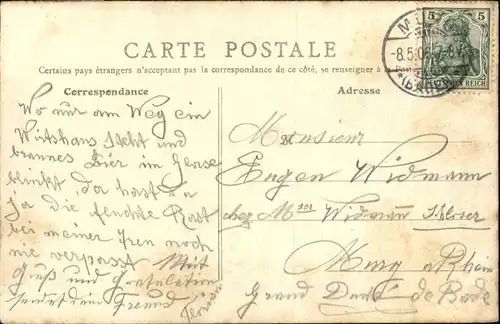 CARTE POSTALE
Certains pays étrangers n'acceptant pas la correspondance de ce côté, se renseigner à la Poste
Correspondance
Adresse
5 5
-8.5.06. 7-8 V.
REICH
Wo nur am Weg ein
Wirtshaus steht und
braunes Bier im Glase
blinkt, da hast Du
ja die feuchte Rast
bei meiner Treu noch
nie verpasst. Mit
Gruß und Gratulation
sendet dein Freund
Monsieur
Eugen Widmann
chez Mme Widmann
Murg a Rhein
Grand Duché de Bade